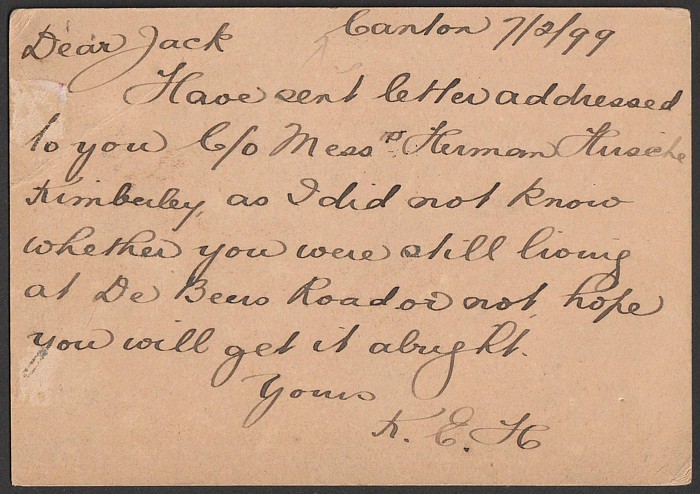 Canton 7/2/99
Dear Jack
Have sent letter addressed
to you C/o Messrs. Herman
Kimberley, as I did not know
whether you were still living
at De Beers Road or not, hope
you will get it alright.
Yours
K. E. H